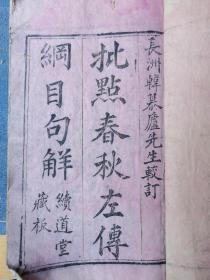 長洲韓慕廬先生較訂
批點春秋左傳
綱目句解
續道堂
藏板